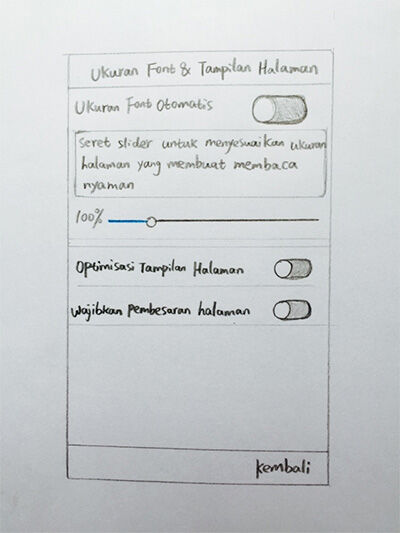 Ukuran Font & Tampilan Halaman
Ukuran Font Otomatis
Seret slider untuk menyesuaikan ukuran
halaman yang membuat membaca
nyaman
100%
Optimisasi Tampilan Halaman
Wajibkan Pembesaran halaman
kembali